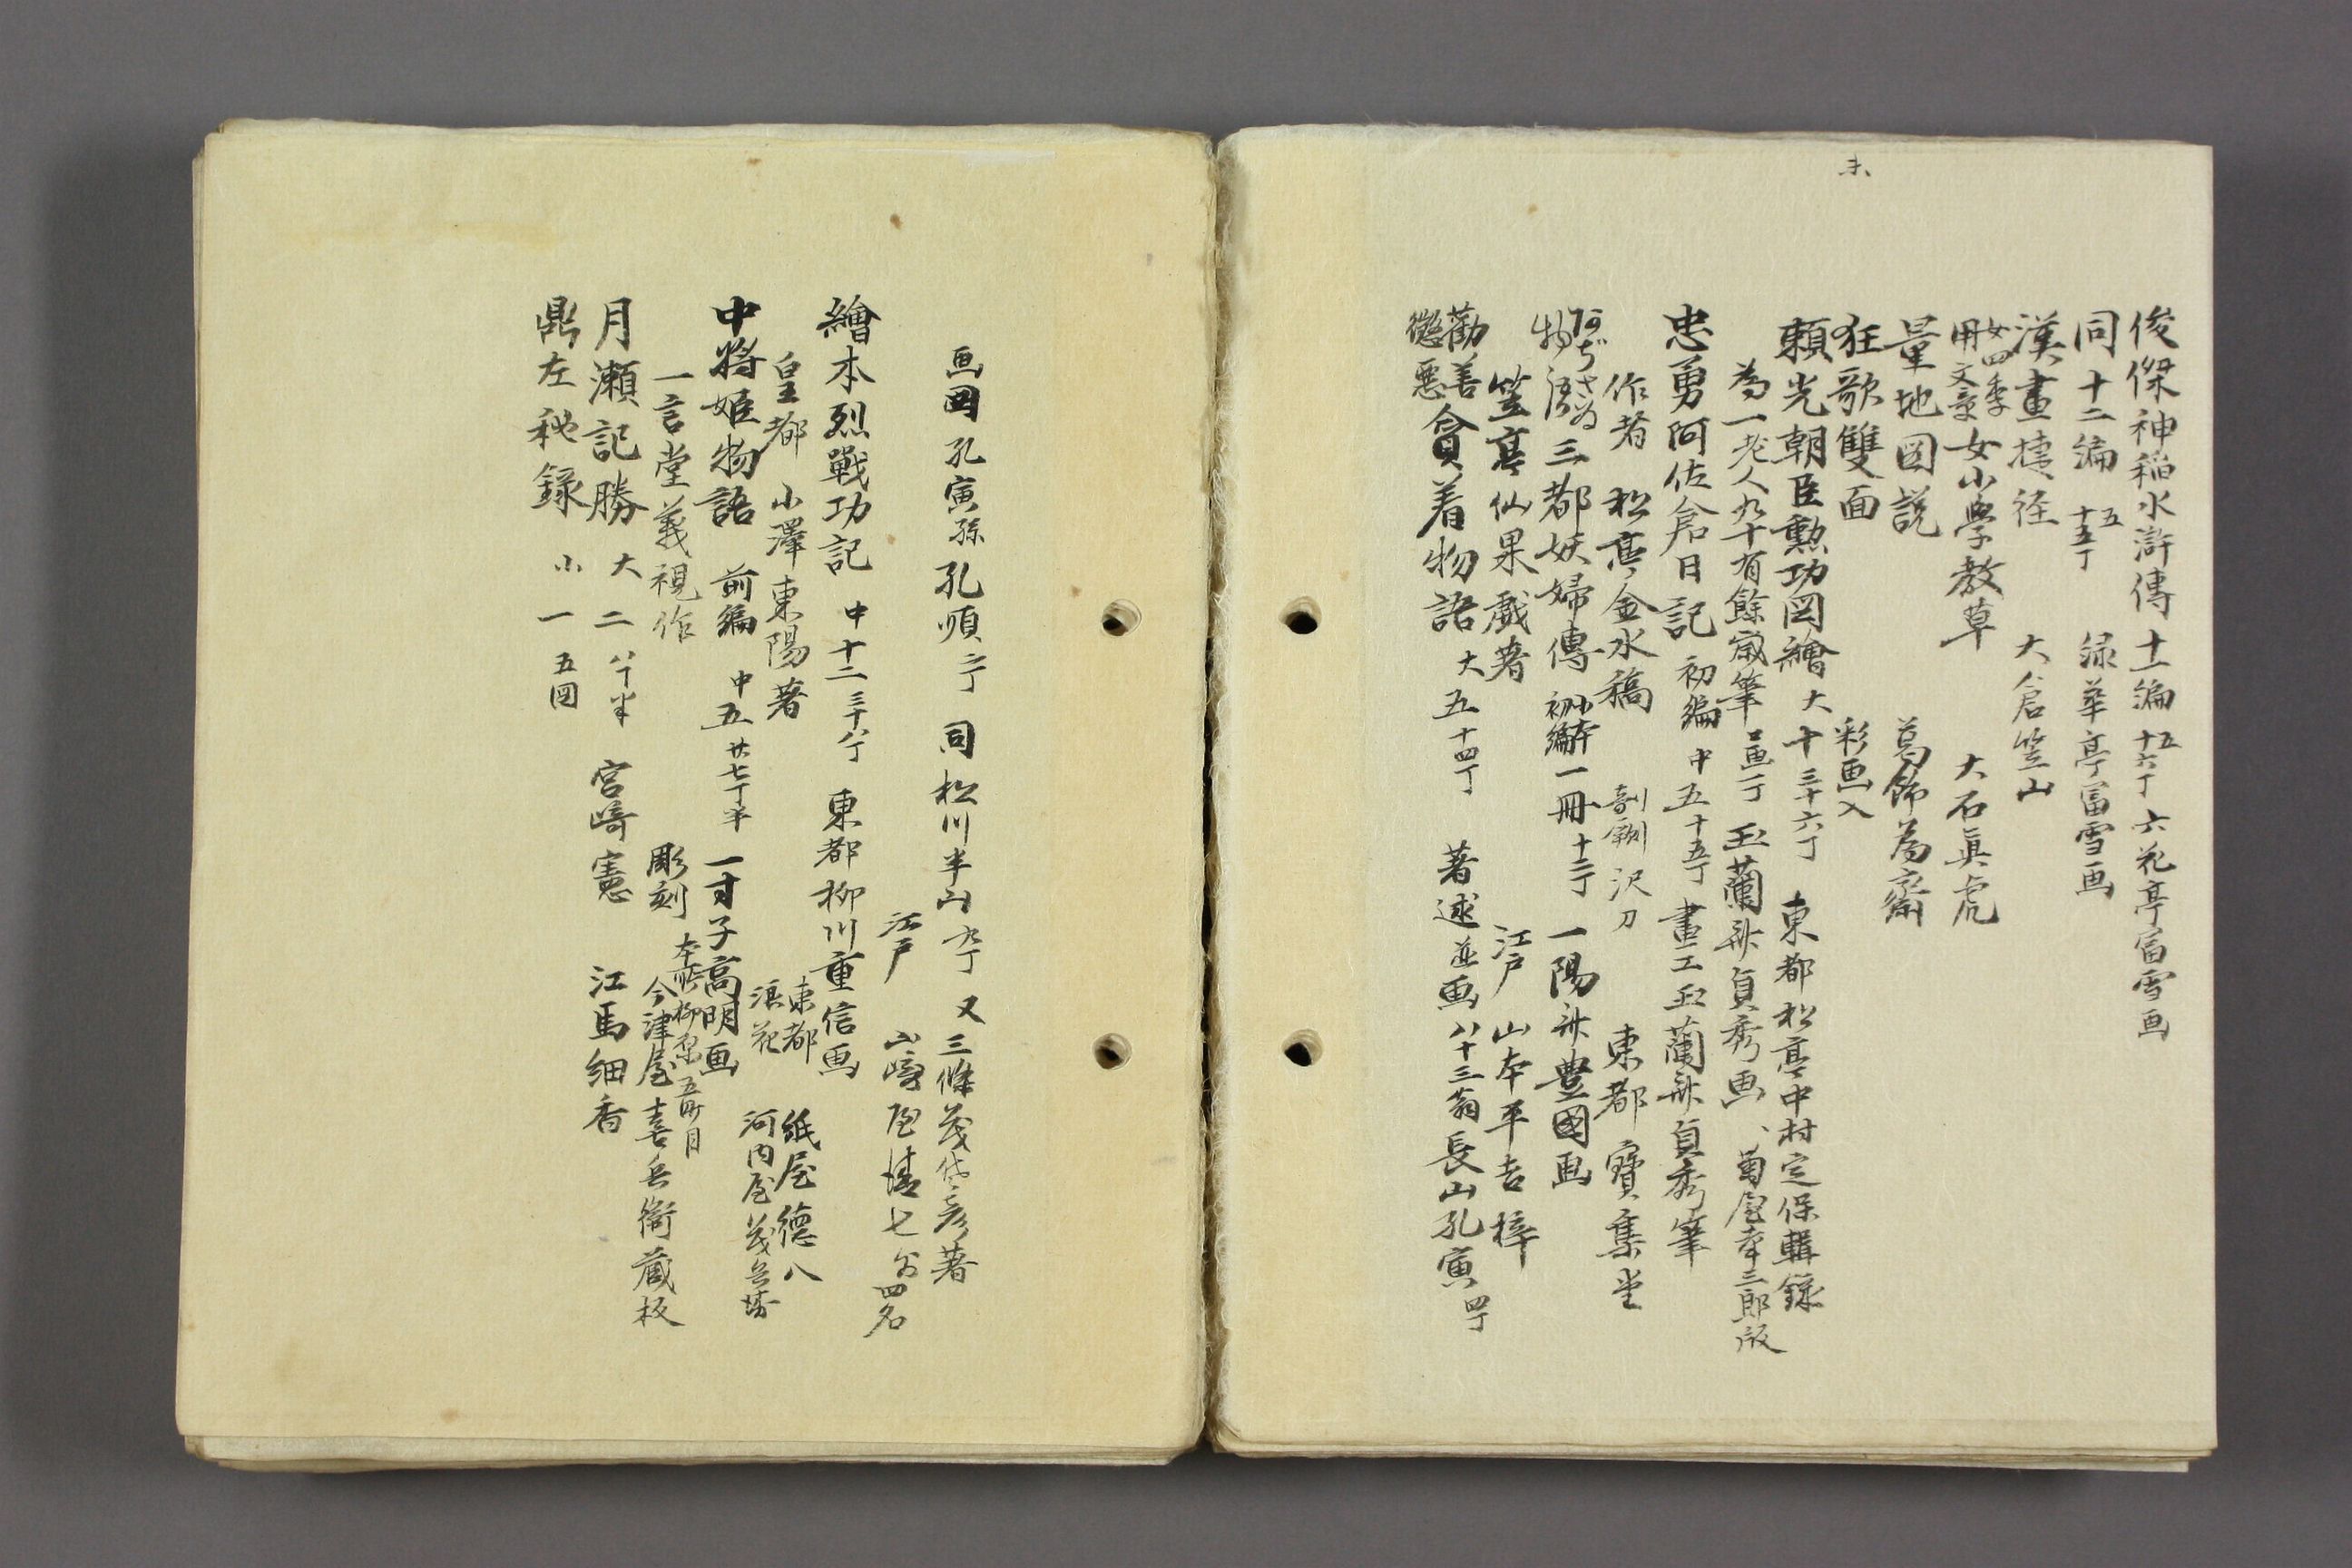 未
俊傑神稲水滸傳 十一編 五 十六丁 六花亭富雪画
同 十二編 五 十五丁 緑華亭富雪画
漢畫捷径 大倉笠山
女四季用文章 女小學教草 大石眞虎
量地図説 葛飾為齋
狂歌雙面 彩画入
頼光朝臣勲功図繪 大十 三十六丁 東都松亭中村定保輯録
為一老人九十有餘歳筆 玉蘭斎貞秀画 菊屋幸三郎版
忠勇阿佐倉日記 初編 中五 十五丁 畫工玉蘭斎貞秀筆
作者 松亭金水稿 剞劂 沢刀 東都 寶集堂
物語 三都妖婦傳 初編 一冊 十二丁 一陽斎豊國画
笠亭仙果戲著 江戸 山本平吉梓
勸善懲惡 貪着物語 大五 十四丁 著述並画 八十三翁長山孔寅 四丁
画図 孔寅孫孔順 二丁 同 松川半山 九丁 又三條茂佐彦著
江戸 山﨑屋清七 外四名
繪本烈戰功記 中十二 三十八丁 東都柳川重信画
皇都 小澤東陽著 東都 紙屋徳八
浪花 河内屋茂兵衛
中将姫物語 前編 中五 廿七丁半 一寸子高明画
一言堂義視作 彫刻 今津屋喜兵衛蔵板
月瀬記勝 大二 宮﨑憲 江馬細香
鼎左秘録 小一 五図